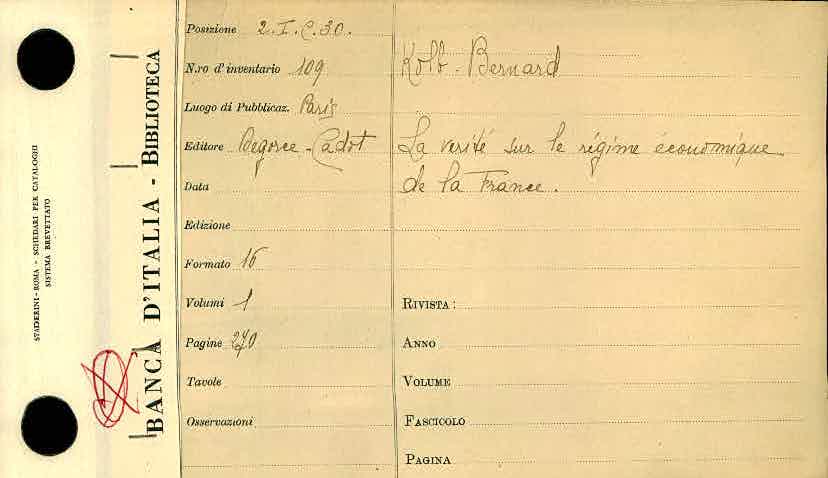 STADERINI - ROMA - SCHEDARI PER CATALOGHI
SISTEMA BREVETTATO
BANCA D'ITALIA - BIBLIOTECA
Posizione 2.I.C.30.
N.ro d'inventario 109
Luogo di Pubblicaz. Paris
Editore Degorce-Cadot
Data
Edizione
Formato 16
Volumi 1
Pagine 270
Tavole
Osservazioni
Kolb-Bernard
La verité sur le régime économique
de la France.
RIVISTA:
ANNO
VOLUME
FASCICOLO
PAGINA